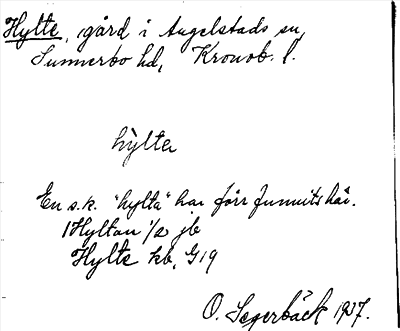 Hylte, gård i Angelstads sn,
Sunnerbo hd, Kronob. l.
hylta
En s.k. "hylta" har förr funnits här.
1 Hyltan 1/2 jb
Hylte kb, G19
O. Segerbäck 1937.